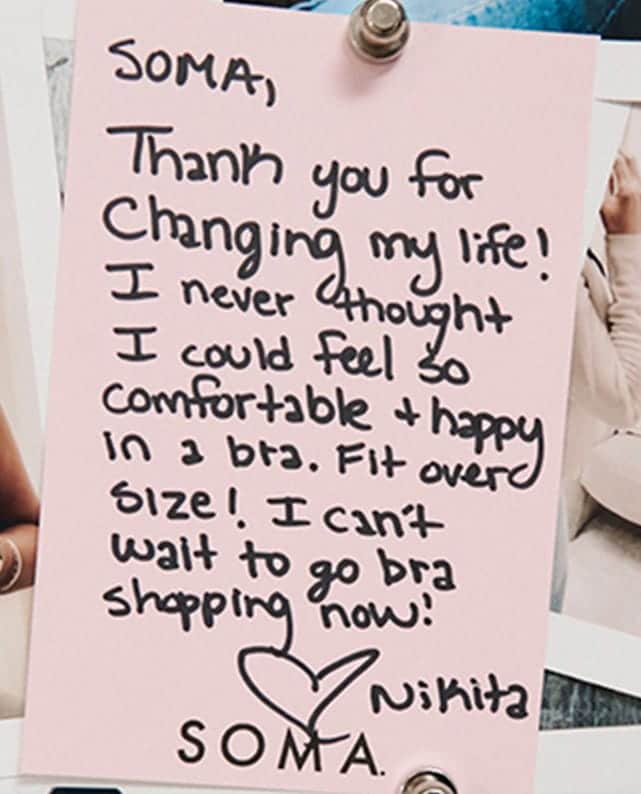 SOMA,
Thank you for
Changing my life!
I never thought
I could feel so
comfortable + happy
in a bra. Fit over
size! I can't
wait to go bra
shopping now!
Nikita
SOMA.